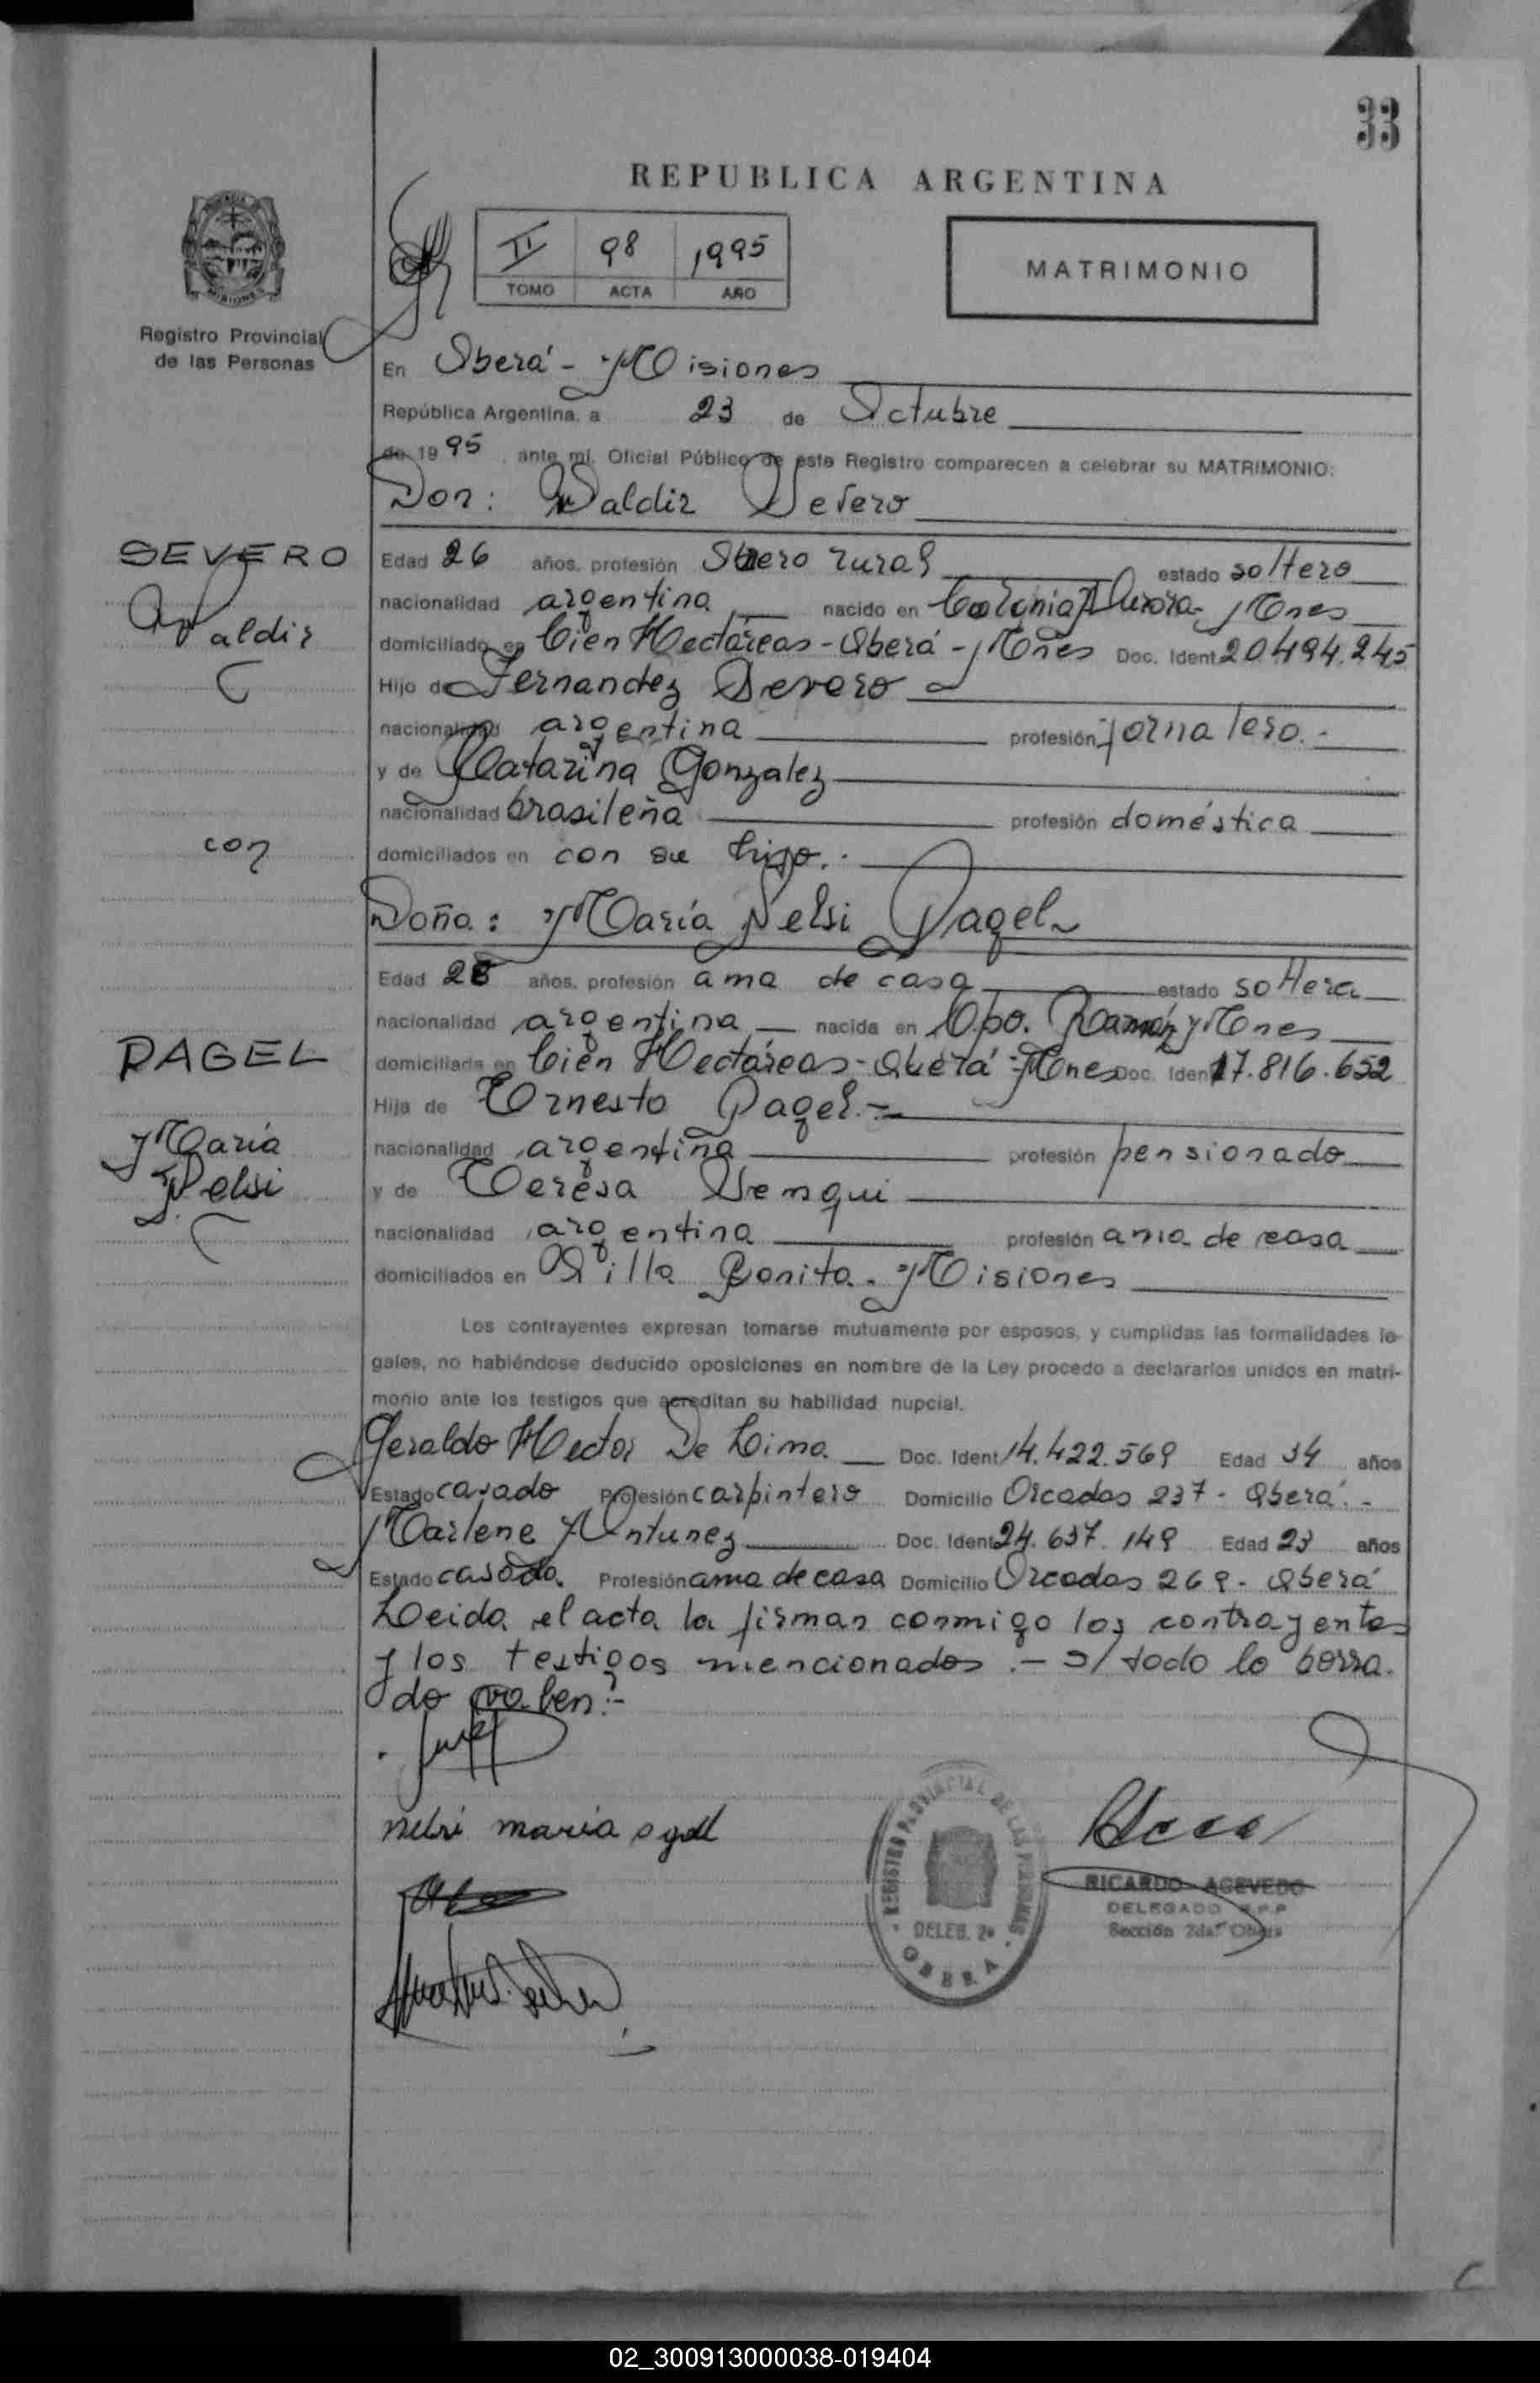 33
REPUBLICA ARGENTINA
II 98 1995
TOMO ACTA AÑO
MATRIMONIO
Registro Provincial
de las Personas
En Oberá - Misiones
República Argentina, a 23 de Octubre
de 1995, ante mí, Oficial Público de este Registro comparecen a celebrar su MATRIMONIO:
Don: Waldir Severo
SEVERO
Waldir
con
PAGEL
María
Nelsi
Edad 26 años, profesión Obrero rural estado soltero
nacionalidad argentina nacido en Colonia Aurora - Mnes
domiciliado en Cien Hectáreas - Oberá - Mnes Doc. Ident 20.494.245
Hijo de Fernandez Severo
nacionalidad argentina profesión jornalero.-
y de Catarina Gonzalez
nacionalidad brasileña profesión doméstica
domiciliados en con su hijo.-
Doña: María Nelsi Pagel
Edad 28 años, profesión ama de casa estado soltera
nacionalidad argentina nacida en Cpo. Ramón Mnes
domiciliada en Cien Hectáreas - Oberá - Mnes Doc. Ident 17.816.652
Hija de Ernesto Pagel.-
nacionalidad argentina profesión pensionado
y de Teresa Senqui
nacionalidad argentina profesión ama de casa
domiciliados en Villa Bonita - Misiones
Los contrayentes expresan tomarse mutuamente por esposos, y cumplidas las formalidades le-
gales, no habiéndose deducido oposiciones en nombre de la Ley procedo a declararlos unidos en matri-
monio ante los testigos que acreditan su habilidad nupcial.
Geraldo Hector De Lima Doc. Ident 14.422.569 Edad 34 años
Estado casado Profesión carpintero Domicilio Orcadas 237 - Oberá.-
Marlene Antunez Doc. Ident 24.637.149 Edad 23 años
Estado casada Profesión ama de casa Domicilio Orcadas 269 - Oberá
Leida el acta la firman conmigo los contrayentes
y los testigos mencionados.- s/ todo lo borra-
do valen.-
nelsi maria pgel
REGISTRO PROVINCIAL DE LAS PERSONAS
DELEG. 2ª
OBERA
RICARDO ACEVEDO
DELEGADO R.P.P
Sección 2da. Oberá
02_300913000038-019404